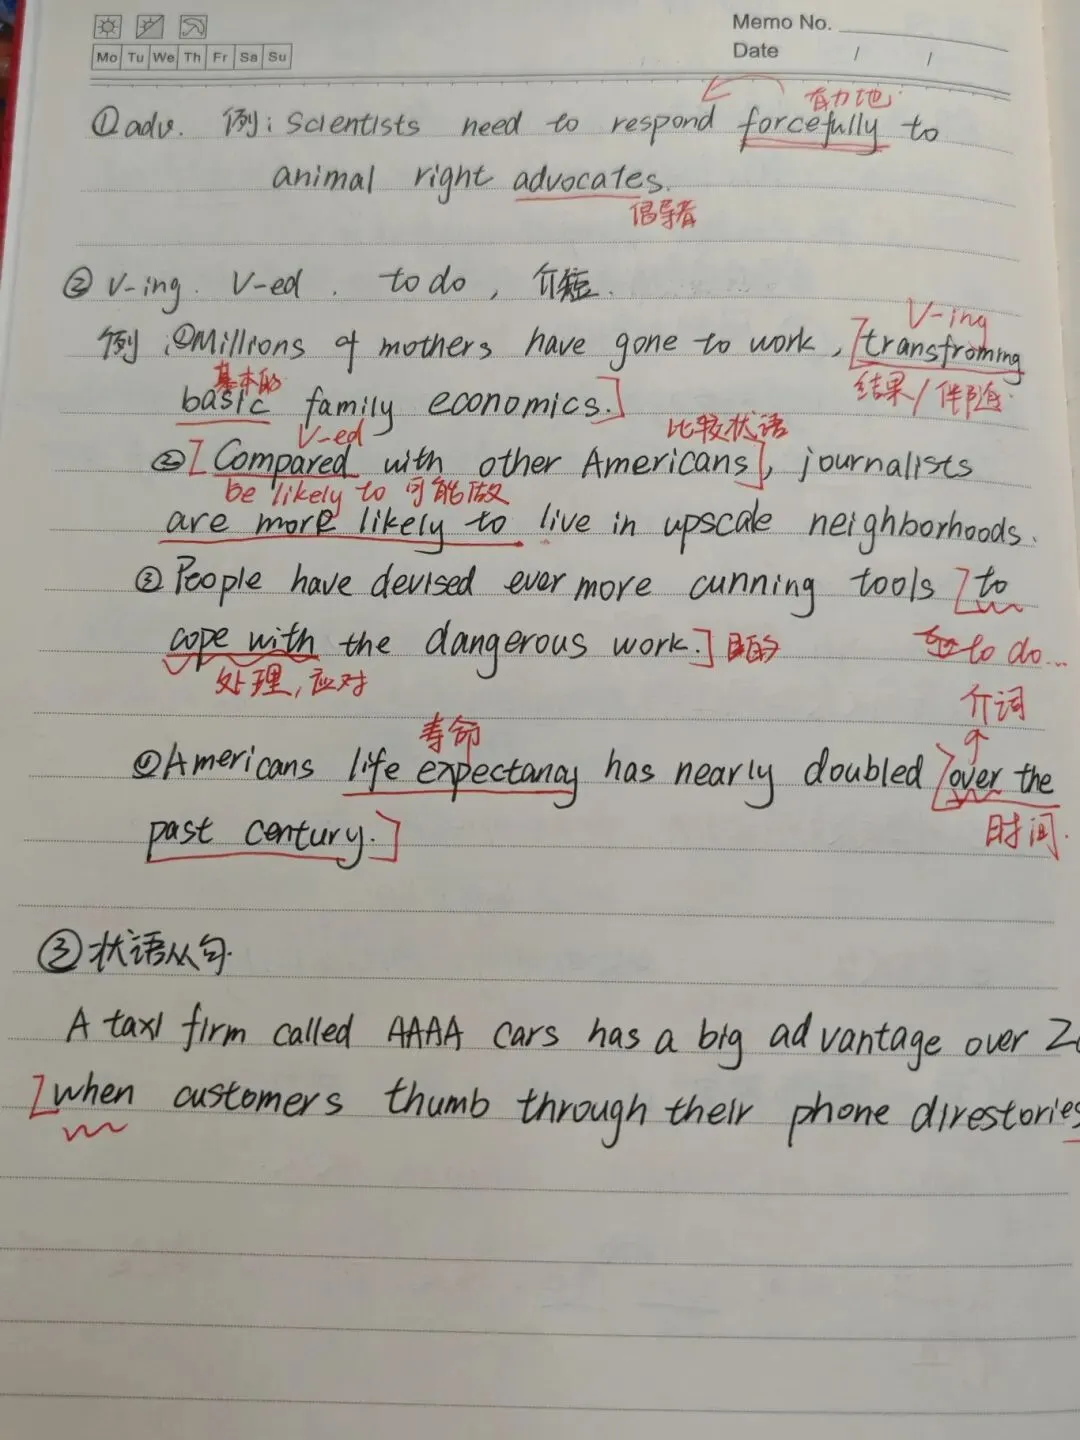 Memo No.
Mo Tu We Th Fr Sa Su
Date / /
有力地
①adv. 例: Scientists need to respond forcefully to
animal right advocates.
倡导者
② V-ing. V-ed. to do, 介短.
V-ing
例:①Millions of mothers have gone to work, [transfroming
基本的 结果/伴随
basic family economics.]
V-ed 比较状语
②[Compared with other Americans], journalists
be likely to 可能做
are more likely to live in upscale neighborhoods.
③People have devised ever more cunning tools [to
cope with the dangerous work.] 目的 to do...
处理,应对
寿命 介词
④Americans life expectancy has nearly doubled [over the
时间.
past century.]
③状语从句.
A taxi firm called AAAA cars has a big advantage over
[when customers thumb through their phone direstories